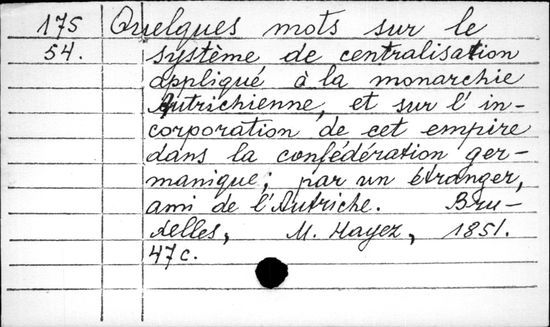 175 Quelques mots sur le
54. système de centralisation
appliqué à la monarchie
Autrichienne, et sur l'in-
corporation de cet empire
dans la confédération ger-
manique; par un étranger,
ami de l'Autriche. Bru-
xelles, M. Hayez, 1851.
47 c.